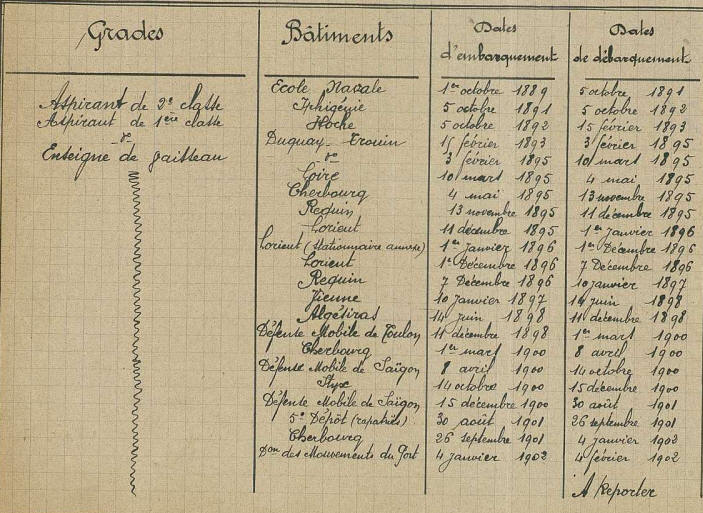 Grades Bâtiments Dates d'embarquement Dates de débarquement
Ecole Navale 1er octobre 1889 5 octobre 1891
Aspirant de 2e classe Iphigénie 5 octobre 1891 5 octobre 1892
Aspirant de 1ère classe Hoche 5 octobre 1892 15 février 1893
do Duguay-Trouin 15 février 1893 3 février 1895
Enseigne de vaisseau do 3 février 1895 10 mars 1895
Loire 10 mars 1895 4 mai 1895
Cherbourg 4 mai 1895 13 novembre 1895
Requin 13 novembre 1895 11 décembre 1895
Lorient 11 décembre 1895 1er Janvier 1896
Lorient (stationnaire annexe) 1er Janvier 1896 1er Décembre 1896
Lorient 1er Décembre 1896 7 Décembre 1896
Requin 7 Décembre 1896 10 janvier 1897
Vienne 10 Janvier 1897 14 juin 1898
Algésiras 14 Juin 1898 11 décembre 1898
Défense Mobile de Toulon 11 décembre 1898 1er mars 1900
Cherbourg 1er mars 1900 8 avril 1900
Défense Mobile de Saïgon 8 avril 1900 14 octobre 1900
Styx 14 octobre 1900 15 décembre 1900
Défense Mobile de Saïgon 15 décembre 1900 30 août 1901
5e Dépôt (rapatriés) 30 août 1901 26 septembre 1901
Cherbourg 26 septembre 1901 4 janvier 1902
Don des Mouvements du Port 4 janvier 1902 4 février 1902
A Reporter